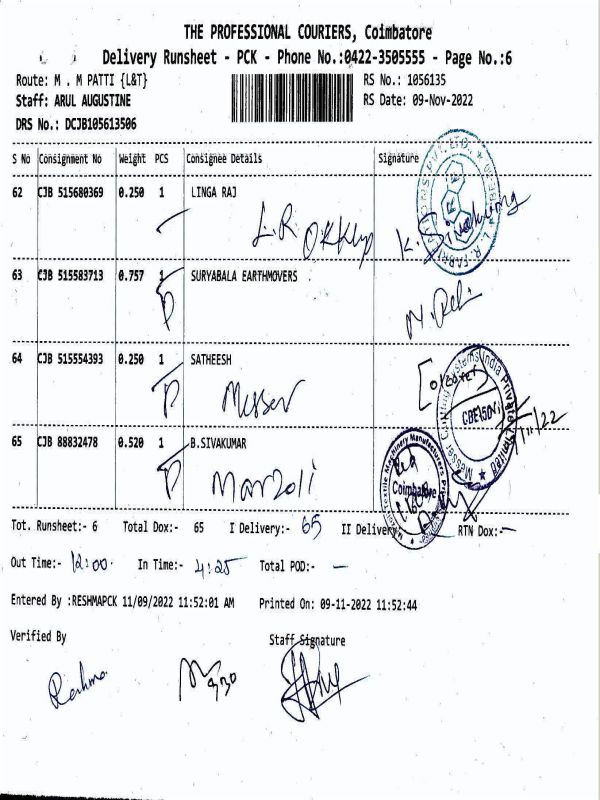 THE PROFESSIONAL COURIERS, Coimbatore
Delivery Runsheet - PCK - Phone No.:0422-3505555 - Page No.:6
Route: M . M PATTI {L&T} RS No.: 1056135
Staff: ARUL AUGUSTINE RS Date: 09-Nov-2022
DRS No.: DCJB105613506
S No Consignment No Weight PCS Consignee Details Signature
62 CJB 515680369 0.250 1 LINGA RAJ
L.R
63 CJB 515583713 0.757 1 SURYABALA EARTHMOVERS
64 CJB 515554393 0.250 1 SATHEESH
Messer
65 CJB 88832478 0.520 1 B.SIVAKUMAR
Marzoli
Coimbatore
Tot. Runsheet:- 6 Total Dox:- 65 I Delivery:- 65 II Delivery RTN Dox:-
Out Time:- 12:00 In Time:- 4:25 Total POD:- —
Entered By :RESHMAPCK 11/09/2022 11:52:01 AM Printed On: 09-11-2022 11:52:44
Verified By Staff Signature